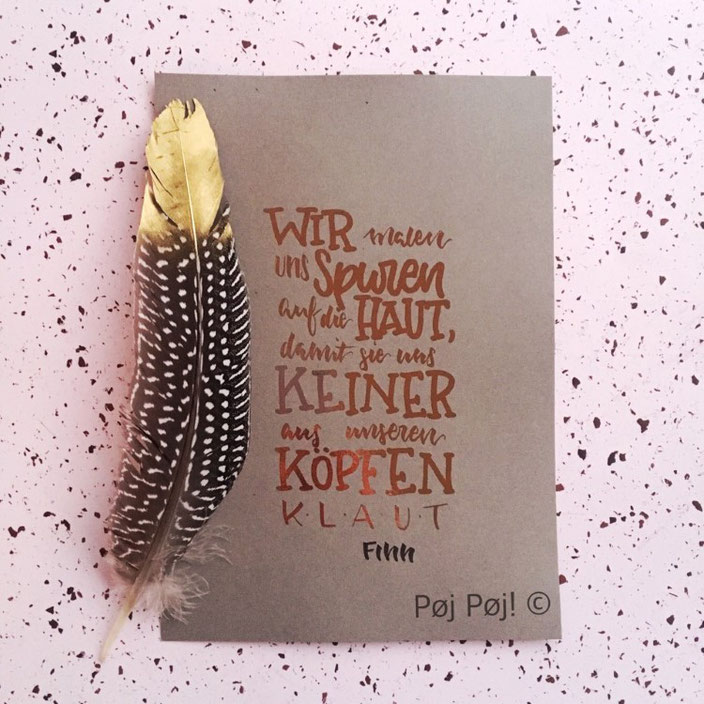 WIR malen
uns Spuren
auf die HAUT,
damit sie uns
KEINER
aus unseren
KÖPFEN
K·L·A·U·T
Finn
Pøj Pøj! ©